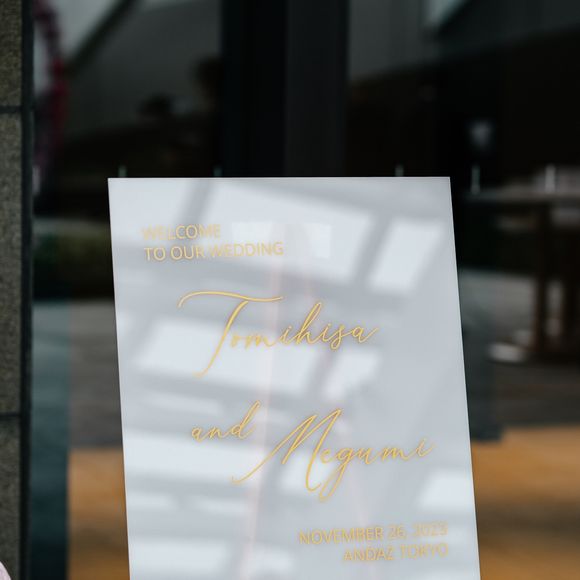 WELCOME
TO OUR WEDDING
Tomihisa
and Megumi
NOVEMBER 26, 2023
ANDAZ TOKYO